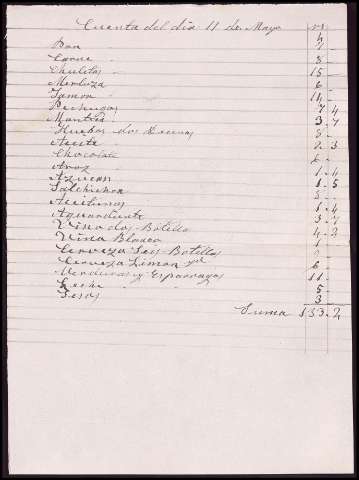 Cuenta del dia 11 de Mayo
Pan
Carne 8
Chuletas 15
Merluza 6
Jamon 14
Pechugas 7 4
Manteca 3 7
Huebos dos Decenas 8
Aceite 2 3
Chocolate
Aroz 1 4
Azucar 1 5
Salchichon
Aceitunas 1 4
Aguardiente 3
Vino dos Botellas 4 2
Vino Blanco
Cerveza Seis Botellas
Cerveza Limon 6
Verduras y Esparragos 11
Leche 5
Sesos 3
Suma 133 2